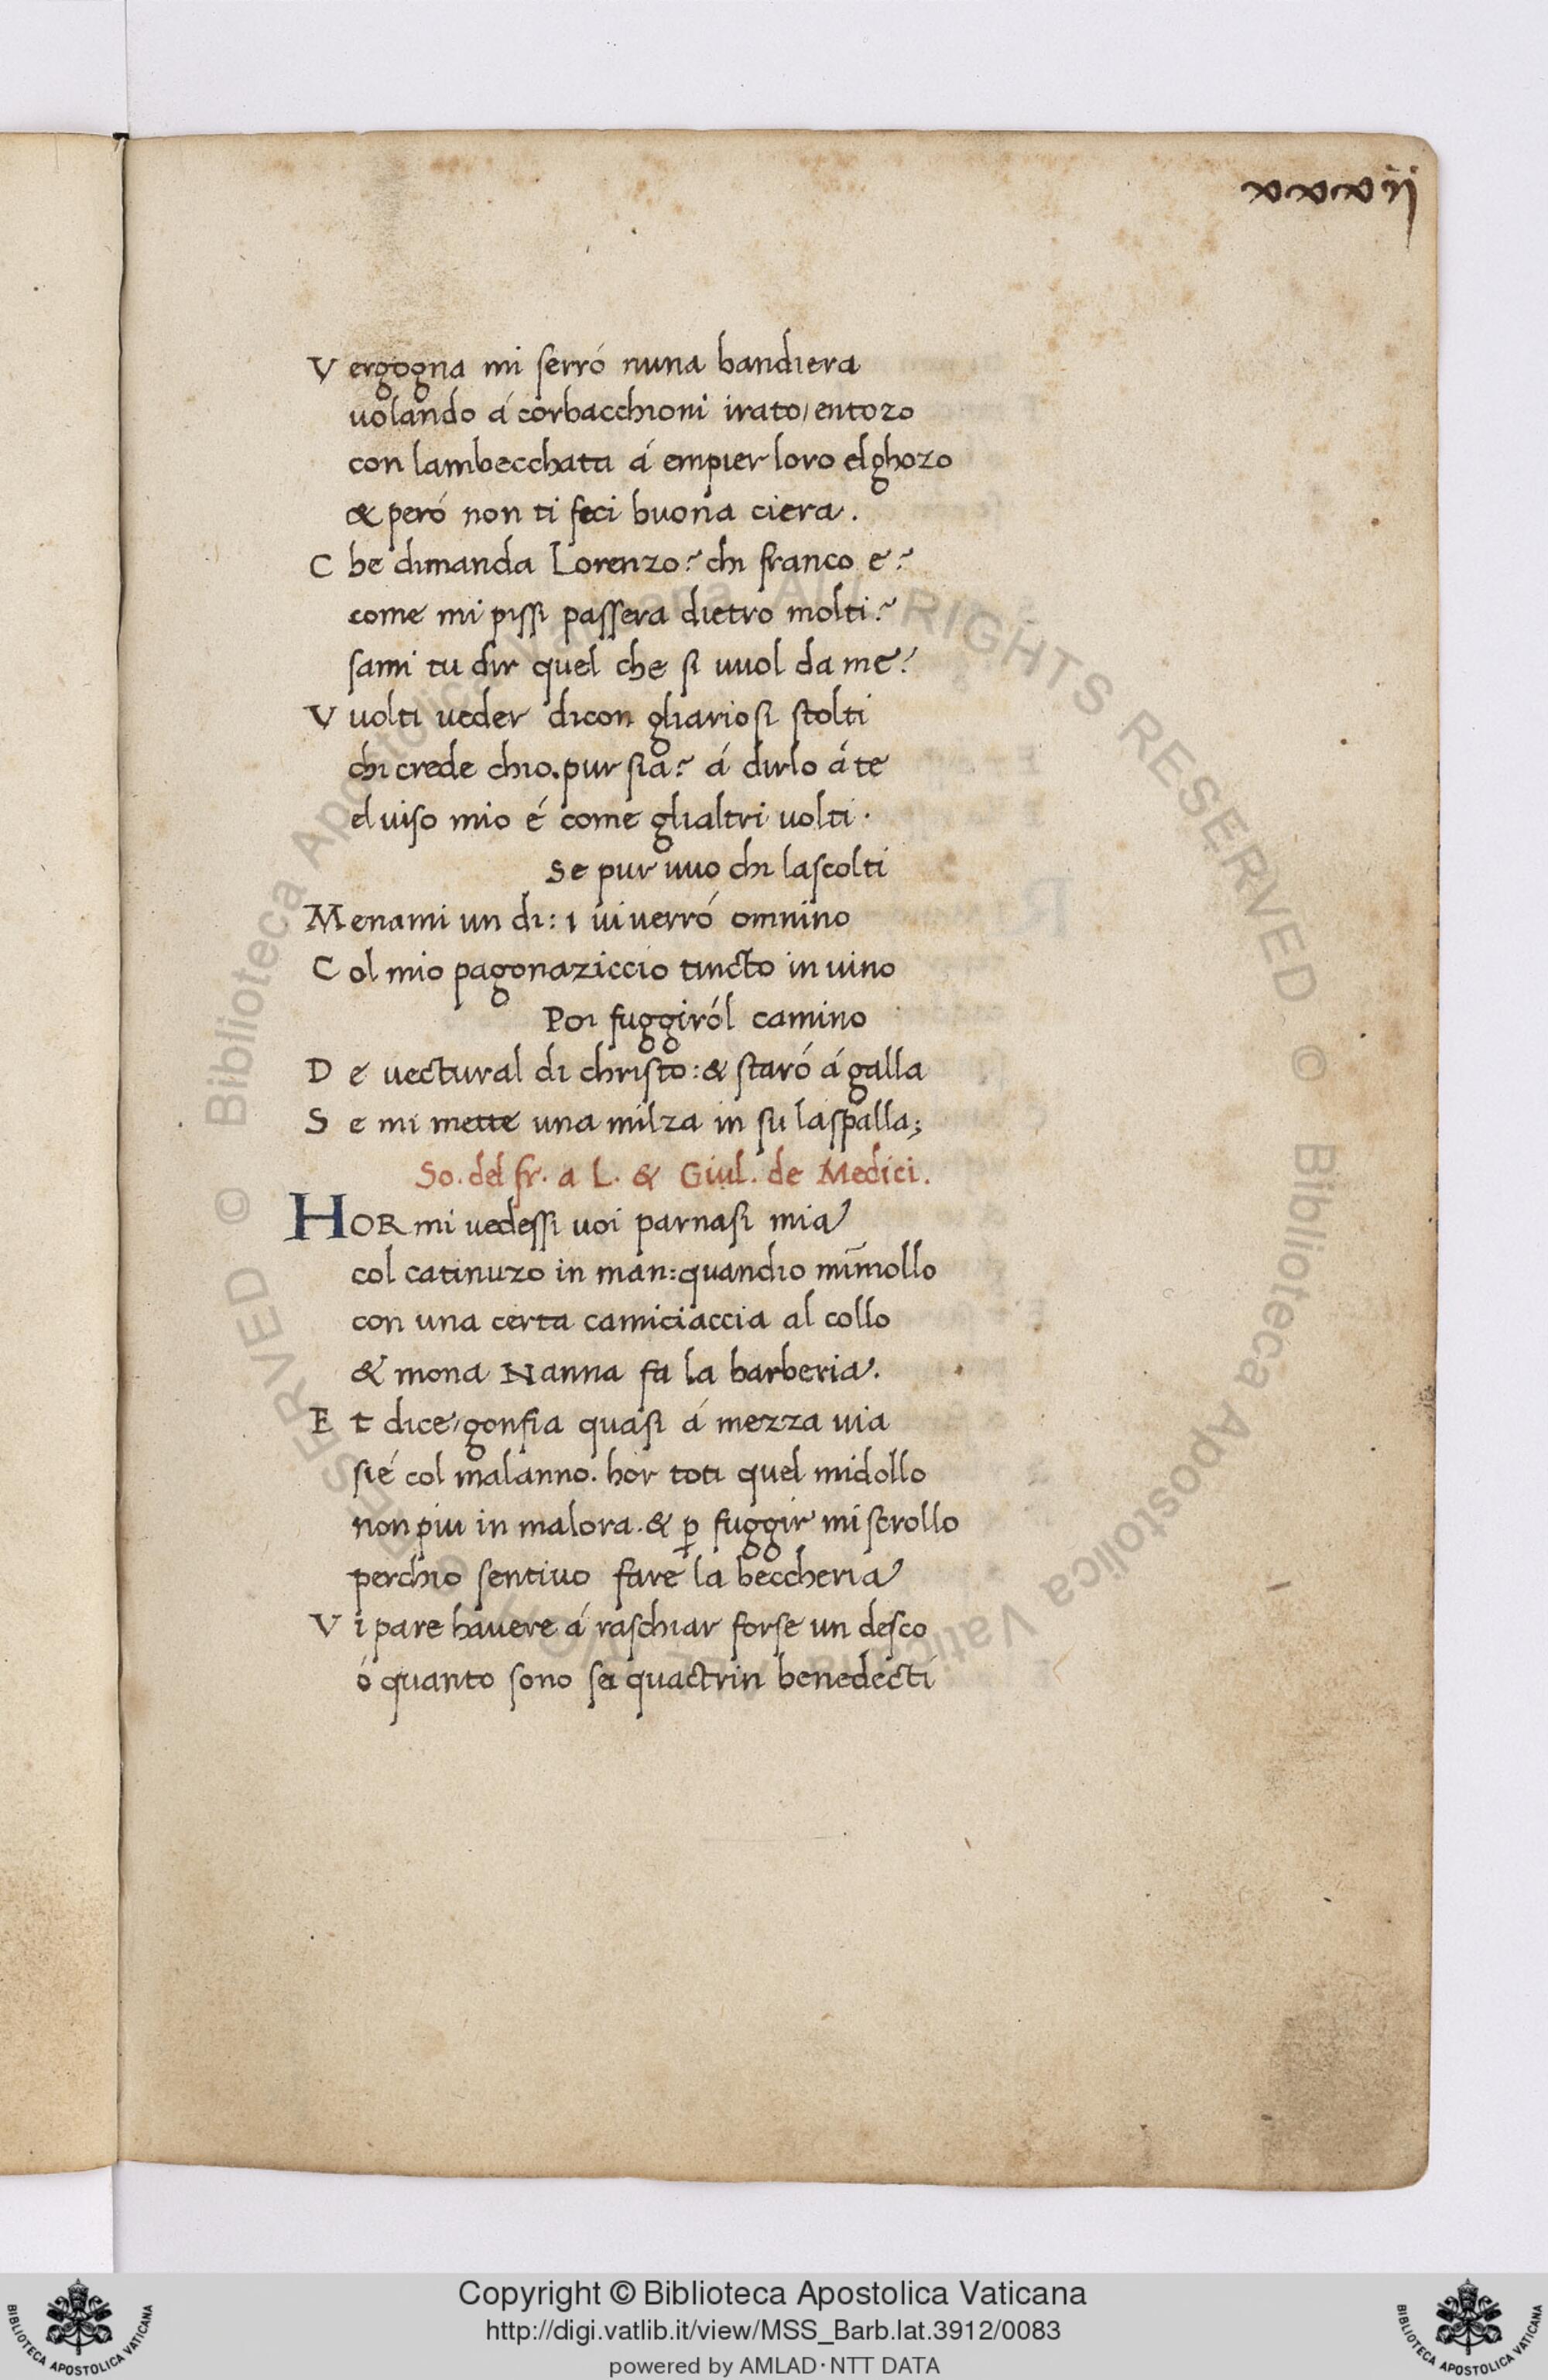 xxxii
V ergogna mi serró nuna bandiera
uolando á corbacchioni irato/entozo
con lambecchata á empier loro elghozo
& peró non ti feci buona ciera.
C he dimanda Lorenzo? chi franco e?
come mi pissi passera dietro molti?
sami tu dir quel che si uuol da me?
V uolti ueder dicon gliariosi stolti
chi crede chio.pur sia? á dirlo á te
el uiso mio é come glialtri uolti.
Se pur uuo chi lascolti
Menami un di: i ui uerró omnino
C ol mio pagonaziccio tincto in uino
Poi fuggiról camino
D e uectural di christo: & staró á galla
S e mi mette una milza in su laspalla;
So. del fr. a L. & Giul. de Medici.
HOR mi uedessi uoi parnasi mia
col catinuzo in man: quandio mīmollo
con una certa camiciaccia al collo
& mona Nanna fa la barberia.
E t dice/gonfia quasi á mezza uia
sié col malanno. hor toti quel midollo
non piu in malora. & ꝑ fuggir mi scrollo
perchio sentiuo fare la beccheria
V i pare hauere á raschiar forse un desco
ó quanto sono sei quactrin benedecti
© Biblioteca Apostolica Vaticana ALL RIGHTS RESERVED © Biblioteca Apostolica Vaticana ALL RIGHTS RESERVED
Copyright © Biblioteca Apostolica Vaticana
http://digi.vatlib.it/view/MSS_Barb.lat.3912/0083
powered by AMLAD·NTT DATA
BIBLIOTECA APOSTOLICA VATICANA
BIBLIOTECA APOSTOLICA VATICANA